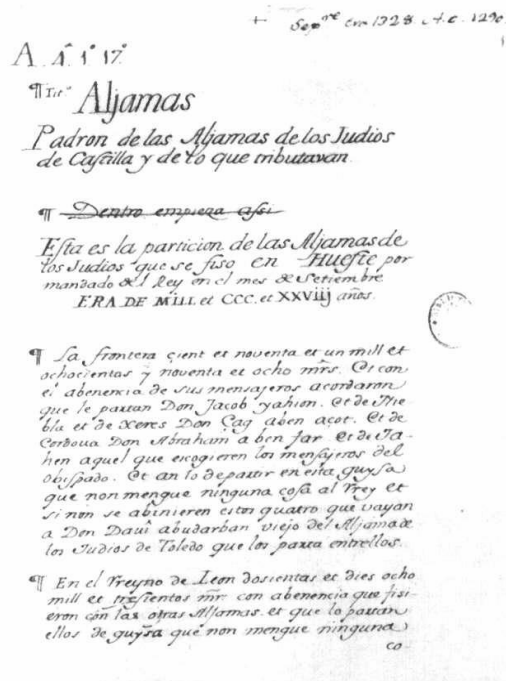 + Sep^re Era 1328. A.C. 1290
A. 4.^a 1.^o 17.^o
¶ Tit.^o Aljamas
Padron de las Aljamas de los Judios
de Castilla y de lo que tributavan
¶ Dentro empieza assi
Esta es la particion de las Aljamas de
los Judios que se fiso en Huefte por
mandado del Rey en el mes de Setiembre
ERA DE MILL et CCC. et XXVIIJ años.
¶ La frontera çient et noventa et un mill et
ochocientas y noventa et ocho mrs. Et con
el abenencia de sus mensajeros acordaron
que le partan Don Jacob yahion. Et de Nie-
bla et de Xeres Don Çag aben açot. Et de
Cordova Don Abraham aben far. Et de Ja-
hen aquel que escogieren los mensajeros del
obispado. Et an lo de partir en esta guysa
que non mengue ninguna cosa al Rrey et
si non se abinieren estos quatro que vayan
a Don Davi abudarban viejo del Aljama de
los Judios de Toledo que los parta entrellos.
¶ En el Rreyno de Leon dosientas et dies ocho
mill et tresientos mr. con abenencia que fisi-
eron con las otras Aljamas. et que lo partan
ellos de guysa que non mengue ninguna
co-